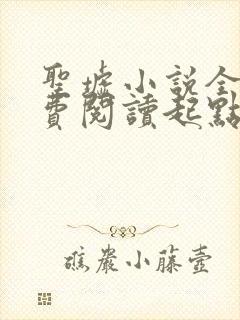 聖墟小説全
費閱讀起點
礁巖小藤壺